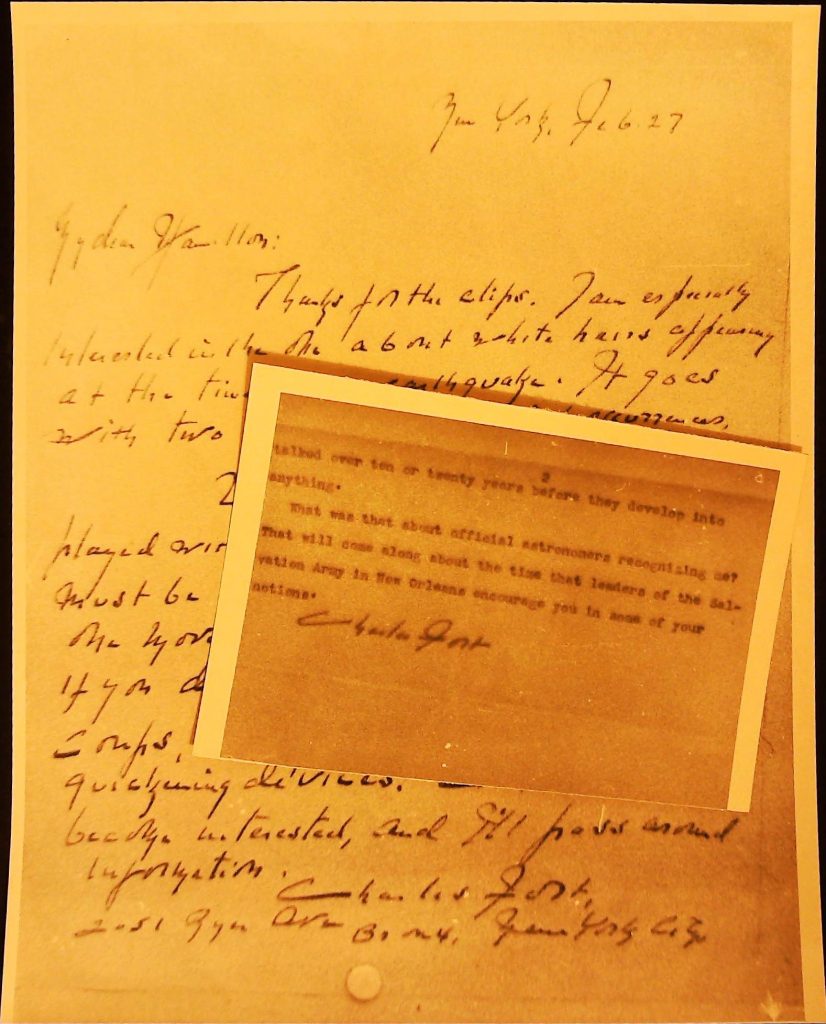 New York, Feb. 27
My dear Hamilton:
Thanks for the clips. I am especially
interested in the one about white hairs appearing
at the time earthquake. It goes
with two occurrences.
played
must be
one
If you
quickening devices.
become interested, and I'll pass around
information.
Charles Fort,
2051 Ryer Ave Bronx, New York City
2
talked over ten or twenty years before they develop into
anything.
What was that about official astronomers recognizing me?
That will come along about the time that leaders of the Sal-
vation Army in New Orleans encourage you in some of your
notions.
Charles Fort